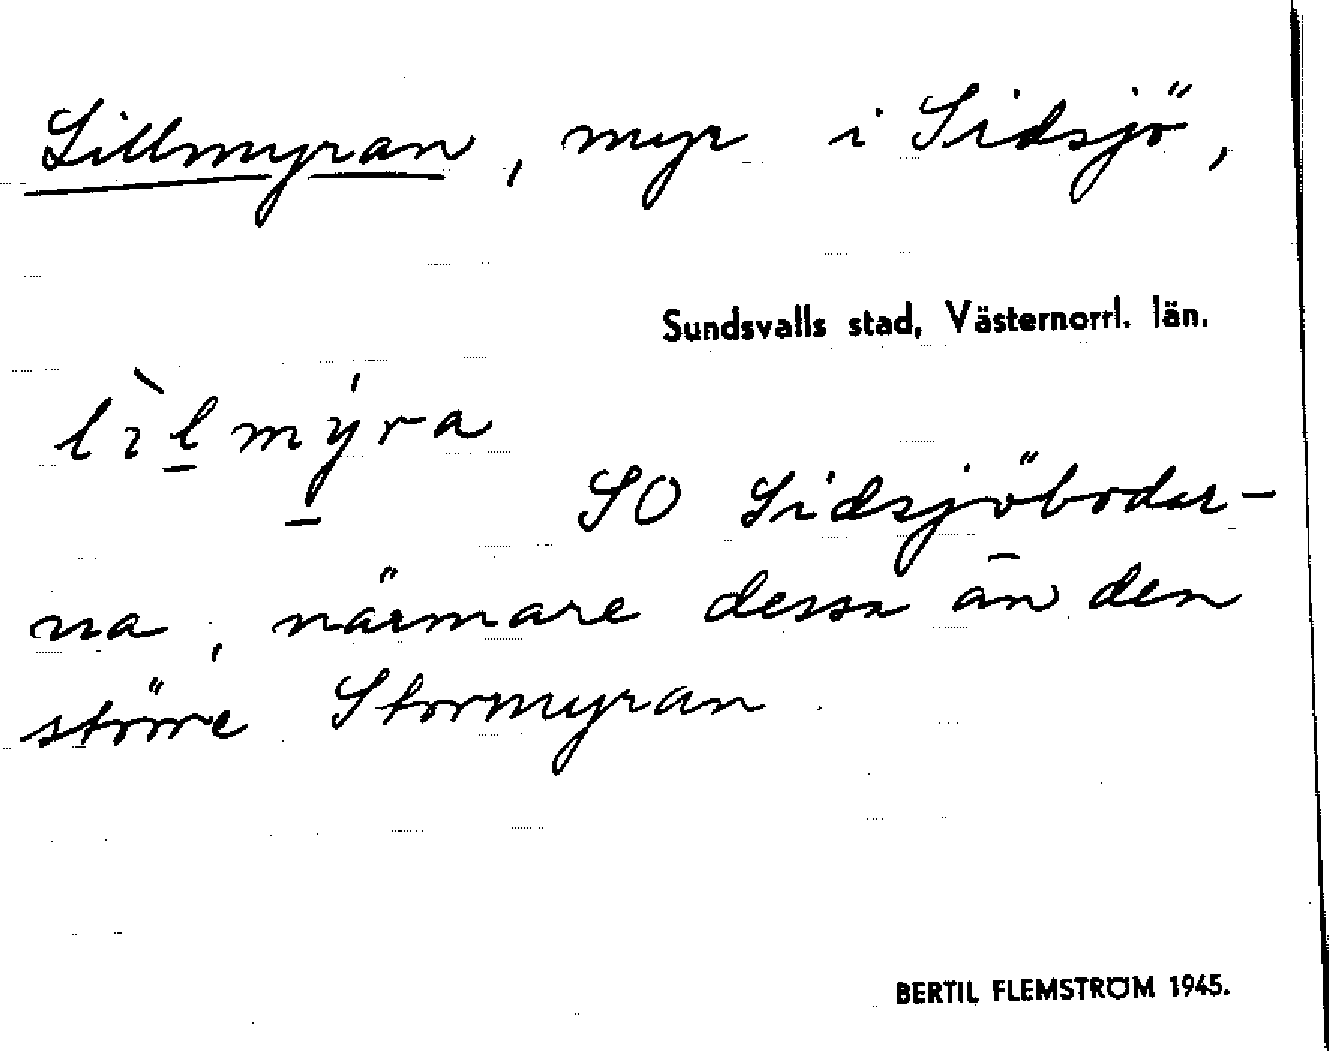 Lillmyran, myr i Sidsjö,
Sundsvalls stad, Västernorrl. län.
lìl̲mý̲ra
SO Sidsjöboder-
na, närmare dessa än den
större Stormyran
BERTIL FLEMSTRÖM 1945.